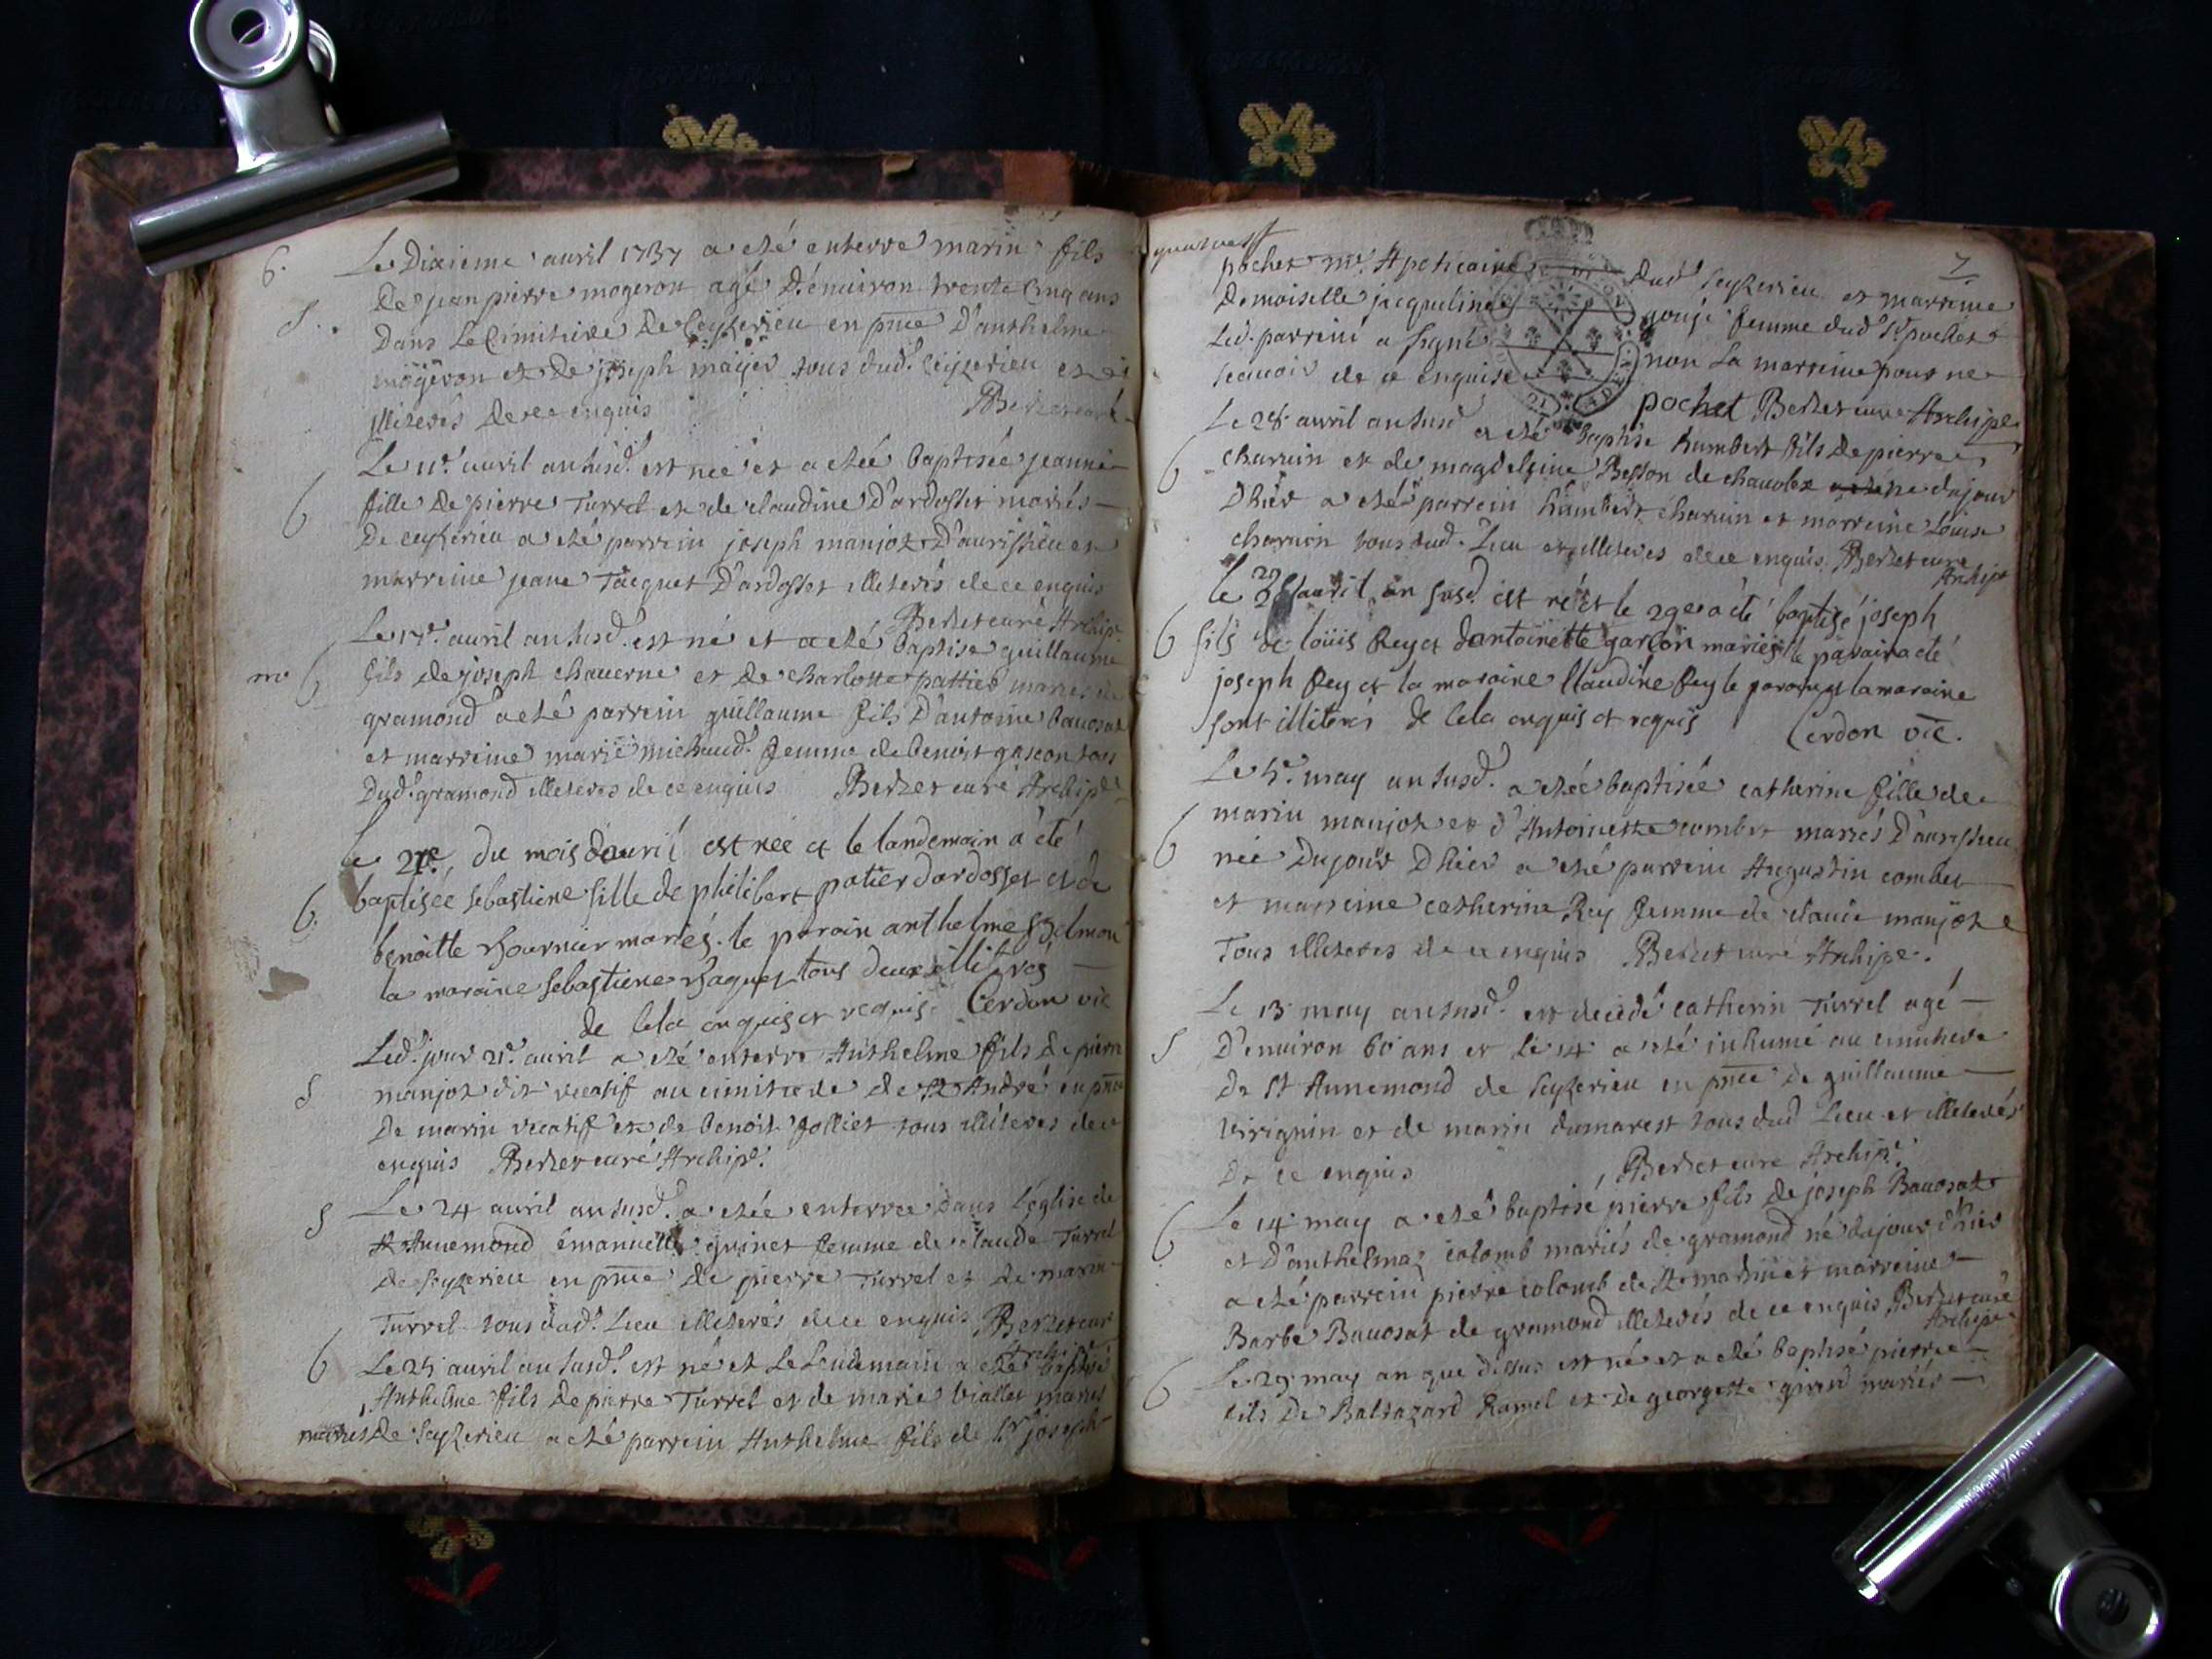 6.
Le Dixieme avril 1737 a eté enterré marin fils
De jean pierre mogeron agé D'environ trente Cinq ans
S.
Dans Le Cimitiere De Ceyzerieu en pnce D'anthelme
mogeron et De joseph tous dud. Ceyzerieu et
illiterés de ce enquis Berzet curé
Le 11e. avril an susd. est née et a etée baptisée jeanne
6
fille De pierre Turrel et de claudine D'ardosset mariés
De ceyzerieu a eté parrein joseph manjot D'aurissieu et
marreine jeane Jacquet D'ardosset illiterés de ce enquis
Berzet curé Archip.
Le 17e. avril an susd. est né et a eté baptisé guillaume
6
fils de joseph chaverne et de charlotte pattier mariés de
gramond a eté parrein guillaume fils D'antoine bavosat
et marreine marie michaud femme de benoit gascon tous
Dud. gramond illiterés de ce enquis Berzet curé Archip.
le 21e. du mois d'avril est née et le landemain a été
6.
baptisée sebastiene fille de philibert patier dardosset et de
benoitte fournier mariés. le parain anthelme
la maraine sebastiene tous deux illiterés
de cela enquis et requis. Cerdon vic
Led. jour 21e. avril a eté enterré Anthelme fils de pierre
S
manjot dit vicatif au cimitiere de St André en pnce
De marin vicatif et de benoit jolliet tous illiterés de ce
enquis Berzet curé Archip.
S
Le 24 avril an susd. a etée enterrée Dans l'église de
St Annemond émanuelle grinet femme de claude Turrel
de Seyzerieu en pnce de pierre Turrel et de marin
Turrel tous dud. Lieu illiterés de ce enquis Berzet curé
Archip
6
Le 25 avril an susd. est né et Le Lendemain a eté baptisé
Anthelme fils de pierre Turrel et de marie viallet mariés
mariés De Seyzerieu a eté parrein Anthelme fils de Sr joseph
7
pochet me. Apoticaire dud Seyzerieu et marreine
Demoiselle jacqueline goujé femme dud Sr pochet
Led. parrein a signé non La marreine pour ne
scavoir de ce enquise
pochet Berzet curé Archip.
Le 28 avril an susd a eté baptisé humbert fils De pierre
6
charvin et de magdeleine Besson de chavolex né du jour
D'hier a eté parrein humbert charvin et marreine Louise
charvin tous dud. Lieu et illiterés de ce enquis Berzet curé
Archip
le 28 avril an susd. est né et le 29e a été baptisé joseph
6
fils de loüis Rey et dantoinette garçon mariés le parain a été
joseph Rey et la maraine Claudine Rey le parain et la maraine
sont illiterés de cela enquis et requis Cerdon vic.
Le 5e. may an susd. a etée baptisée catherine fille de
marin manjot et d'Antoinette combet mariés D'aurissieu
6
née Du jour D'hier a eté parrein Augustin combet
et marreine catherine Rey femme de claude manjot
Tous illiterés de ce enquis Berzet curé Archip.
Le 13 may an susd. est decedé catherin Turrel agé
S
D'environ 60 ans et Le 14 a eté inhumé au cimitiere
De St Annemond de Seyzerieu en pnce de guillaume
virignin et de marin dumarest tous dud Lieu et illiterés
De ce enquis Berzet curé Archip.
6
Le 14 may a eté baptisé pierre fils de joseph Bavosat
et D'anthelma colomb mariés de gramond né du jour d'hier
a eté parrein pierre colomb de St martin et marreine
Barbe Bavosat de gramond illiterés de ce enquis Berzet curé
Archip.
6
Le 29 may an que dessus est né et a eté baptisé pierre
fils De Baltazard Ramel et De georgette girod mariés